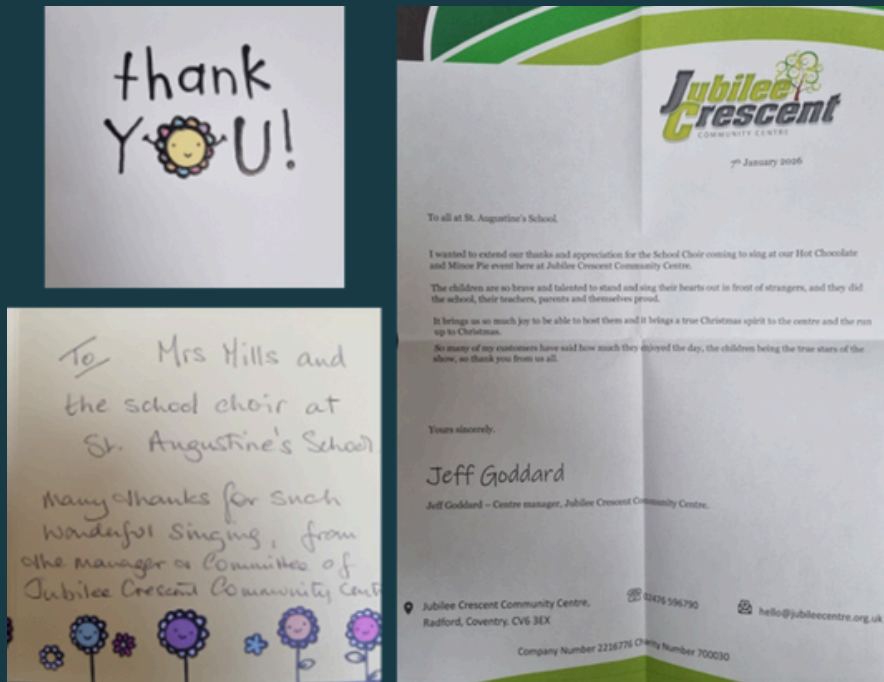 thank
YOU!
To Mrs Mills and
the school choir at
St. Augustine's School.
Many thanks for such
wonderful singing, from
the manager & Committee of
Jubilee Crescent Community Cent
Jubilee
Crescent
COMMUNITY CENTRE
7th January 2026
To all at St. Augustine's School.
I wanted to extend our thanks and appreciation for the School Choir coming to sing at our Hot Chocolate
and Mince Pie event here at Jubilee Crescent Community Centre.
The children are so brave and talented to stand and sing their hearts out in front of strangers, and they did
the school, their teachers, parents and themselves proud.
It brings us so much joy to be able to host them and it brings a true Christmas spirit to the centre and the run
up to Christmas.
So many of my customers have said how much they enjoyed the day, the children being the true stars of the
show, so thank you from us all.
Yours sincerely.
Jeff Goddard
Jeff Goddard – Centre manager, Jubilee Crescent Community Centre.
Jubilee Crescent Community Centre,
Radford, Coventry. CV6 3EX
02476 596790
hello@jubileecentre.org.uk
Company Number 2216776 Charity Number 700030